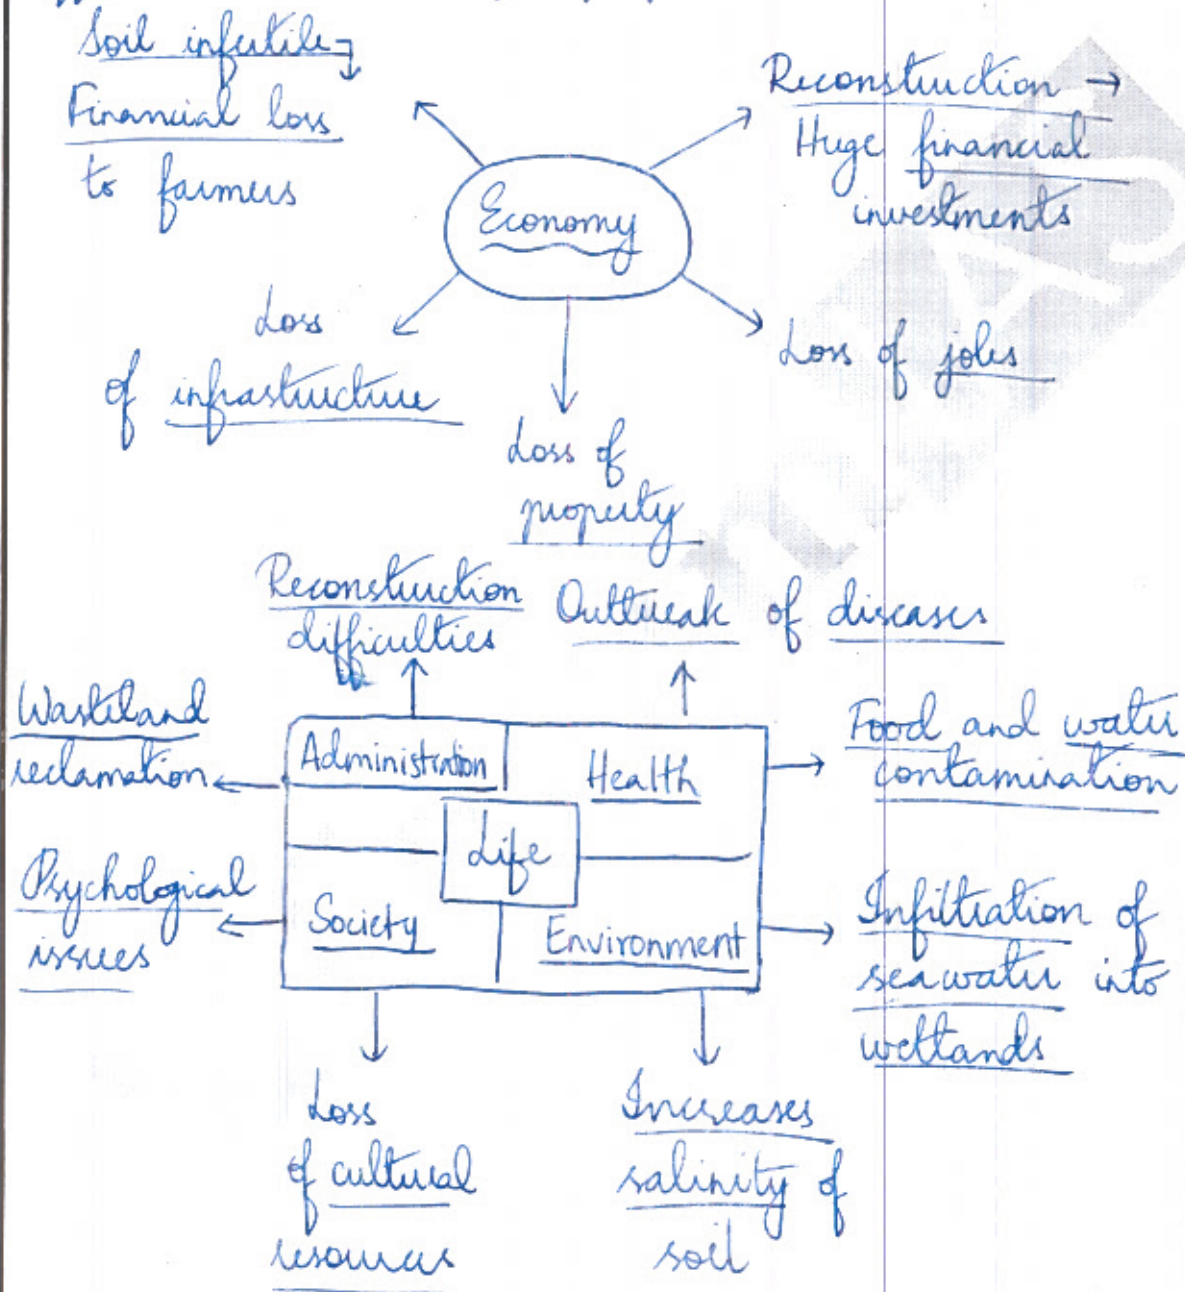 Soil infertile
Financial loss
to farmers
Reconstruction →
Huge financial
investments
Economy
Loss
of infrastructure
Loss of jobs
Loss of
property
Reconstruction
difficulties
Outbreak of diseases
Wasteland
reclamation
Administration
Health
Food and water
contamination
Life
Psychological
issues
Society
Environment
Infiltration of
seawater into
wetlands
Loss
of cultural
resources
Increases
salinity of
soil